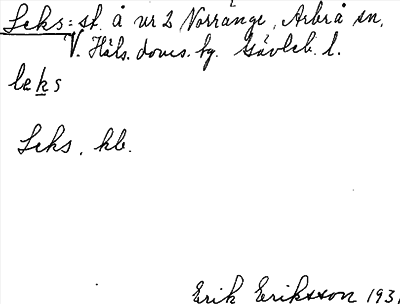 Leks: st. å nr 2 Norränge, Arbrå sn,
V. Häls. doms. hg. Gävleb. l.
leks
Leks, kb.
Erik Eriksson 193